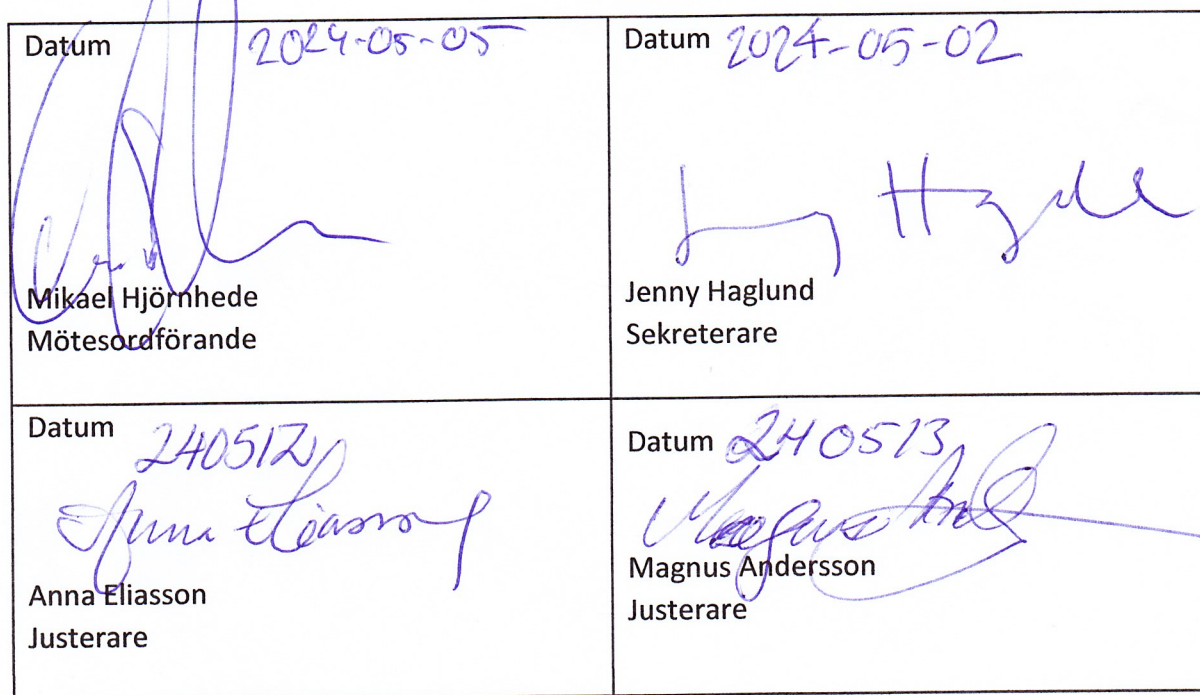 Datum 2024-05-05
Mikael Hjörnhede
Mötesordförande
Datum 2024-05-02
Jenny Haglund
Jenny Haglund
Sekreterare
Datum
240512
Anna Eliasson
Anna Eliasson
Justerare
Datum 240513
Magnus
Magnus Andersson
Justerare